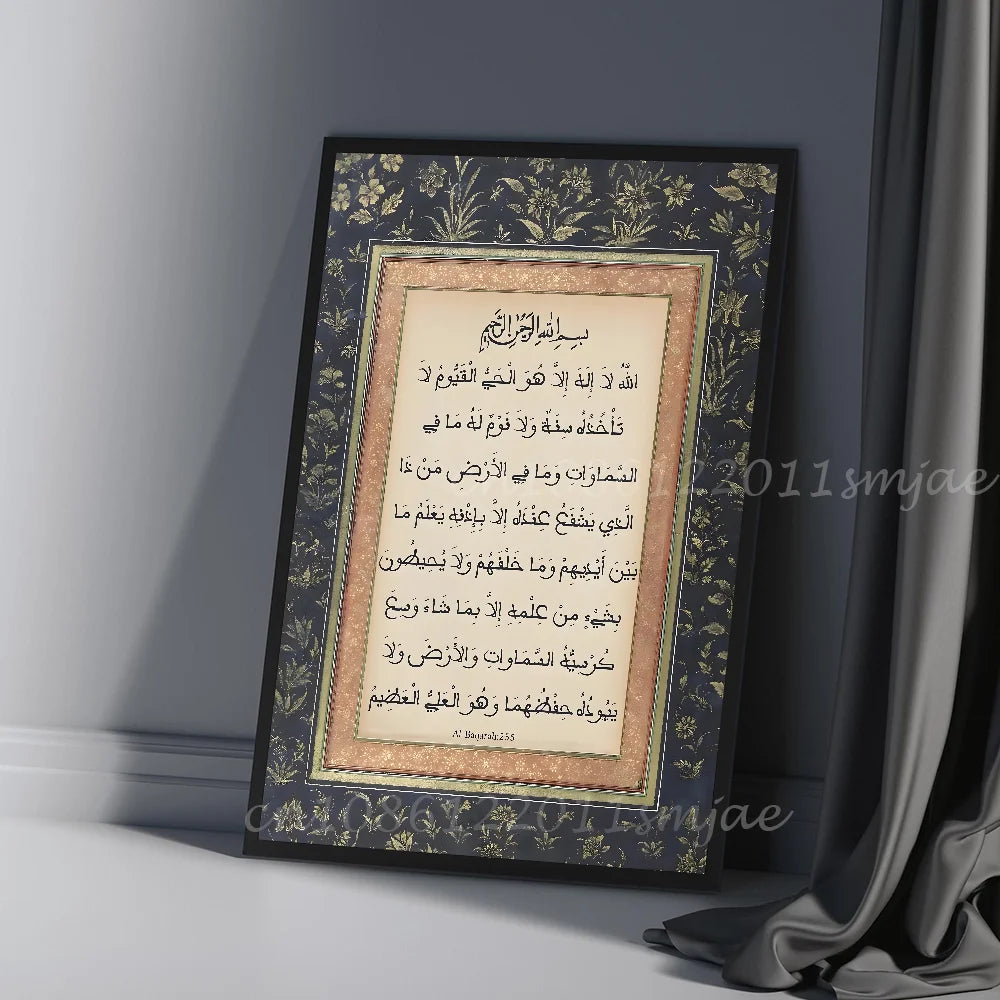 بِسْمِ اللهِ الرَّحْمٰنِ الرَّحِيمِ
اللَّهُ لاَ إِلَهَ إِلاَّ هُوَ الْحَيُّ الْقَيُّومُ لاَ
تَأْخُذُهُ سِنَةٌ وَلاَ نَوْمٌ لَهُ مَا فِي
السَّمَاوَاتِ وَمَا فِي الأَرْضِ مَنْ ذَا
الَّذِي يَشْفَعُ عِنْدَهُ إِلاَّ بِإِذْنِهِ يَعْلَمُ مَا
بَيْنَ أَيْدِيهِمْ وَمَا خَلْفَهُمْ وَلاَ يُحِيطُونَ
بِشَيْءٍ مِنْ عِلْمِهِ إِلاَّ بِمَا شَاءَ وَسِعَ
كُرْسِيُّهُ السَّمَاوَاتِ وَالأَرْضَ وَلاَ
يَئُودُهُ حِفْظُهُمَا وَهُوَ الْعَلِيُّ الْعَظِيمُ
Al Baqarah:255
cn1086122011smjae
cn1086122011smjae